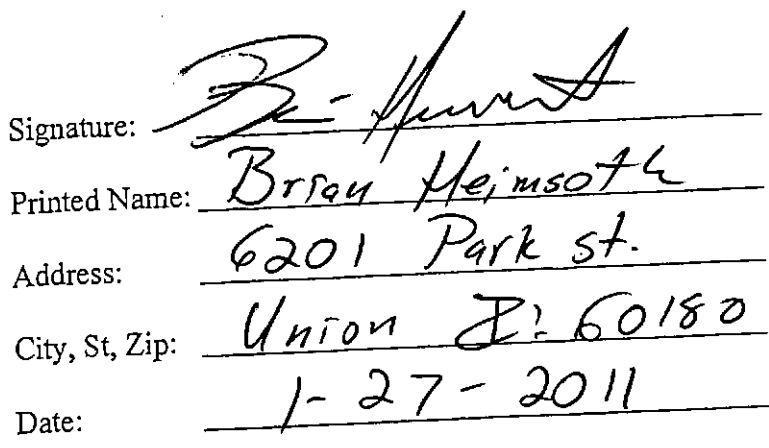 Signature:
Printed Name: Brian Heimsoth
Address: 6201 Park st.
City, St, Zip: Union Il 60180
Date: 1-27-2011